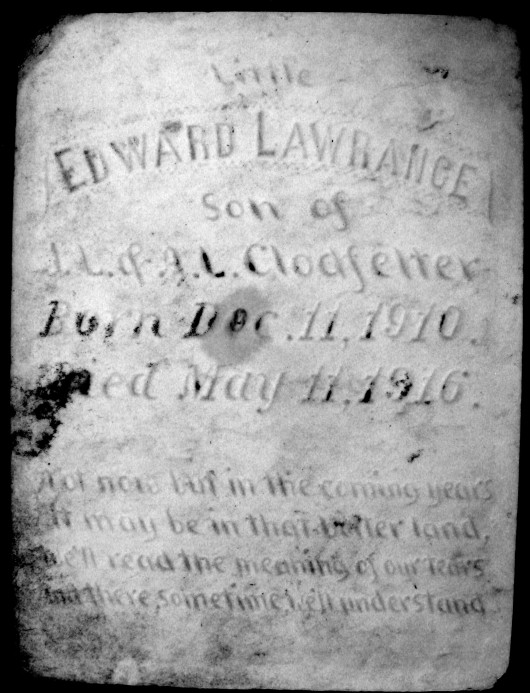 Little
EDWARD LAWRANCE
Son of
J.L. & A.L. Clodfelter
Born Dec. 11, 1910.
Died May 11, 1916.
Not now but in the coming years
It may be in that better land,
We'll read the meaning of our tears
And there, sometime, we'll understand.